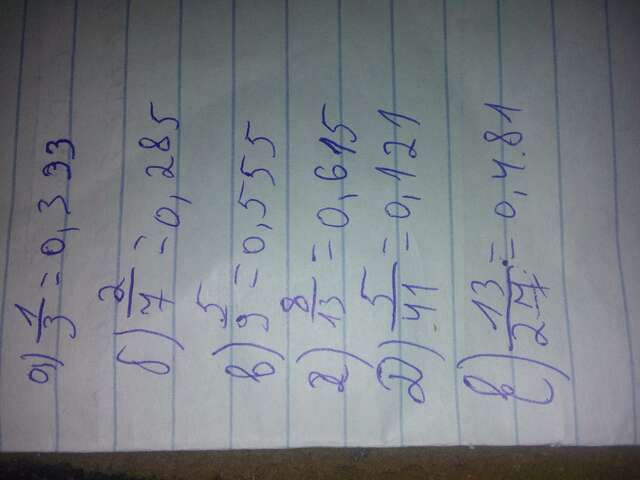 а) 1/3 = 0,333
б) 2/7 = 0,285
в) 5/9 = 0,555
г) 8/13 = 0,615
д) 5/41 = 0,121
е) 13/27 = 0,481